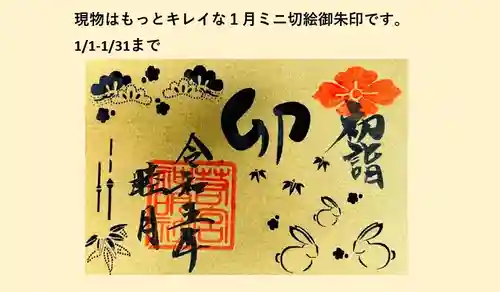 現物はもっとキレイな１月ミニ切絵御朱印です。
1/1-1/31まで
初詣
卯
令和五年
睦月